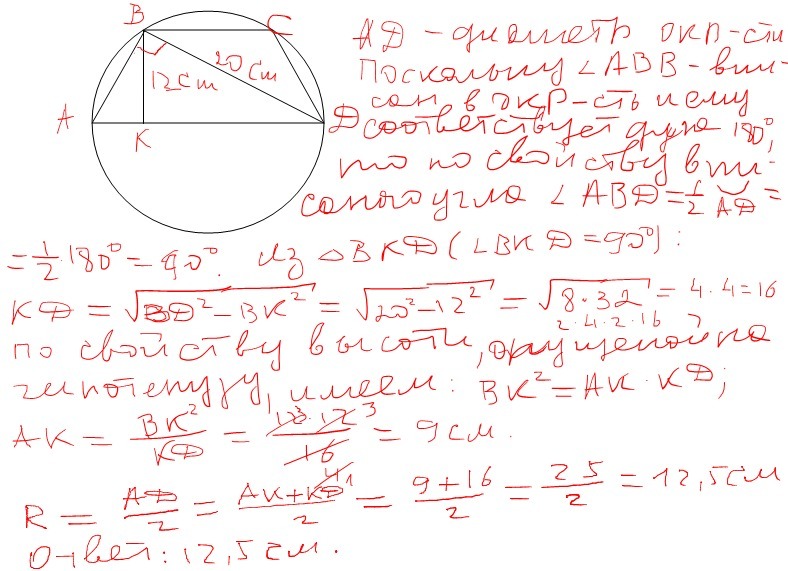 B
C
A
K
12 cm
20 cm
AD - диаметр окр-сти
Поскольку ∠ABB - впи-
сан в окр-сть и ему
D соответствует дуга 180°,
то по свойству впи-
санного угла ∠ABD = 1/2 ◡AD =
= 1/2 · 180° = 90°. Из △BKD (∠BKD = 90°) :
KD = √(BD² - BK²) = √(20² - 12²) = √(8 · 32) = 4 · 4 = 16
2 · 4 · 2 · 16
по свойству высоты, опущеной на
гипотенузу, имеем: BK² = AK · KD;
AK = BK²/KD = 12³ · 12³/16 = 9 см.
4 1
R = AD/2 = (AK + KD)/2 = (9 + 16)/2 = 25/2 = 12,5 см
Ответ: 12,5 см.